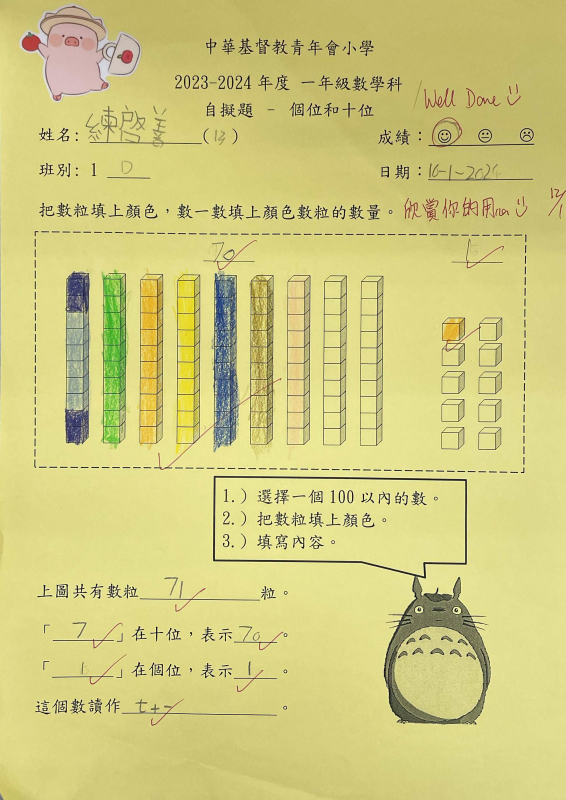 中華基督教青年會小學
2023-2024 年度 一年級數學科
自擬題 - 個位和十位
Well Done
姓名: 練啓善 (13)
成績:
班別: 1 D
日期: 16-1-2024
把數粒填上顏色，數一數填上顏色數粒的數量。 欣賞你的用心
12/1
70
1
1.) 選擇一個 100 以內的數。
2.) 把數粒填上顏色。
3.) 填寫內容。
上圖共有數粒 71 粒。
「 7 」在十位，表示 70 。
「 1 」在個位，表示 1 。
這個數讀作 七十一 。